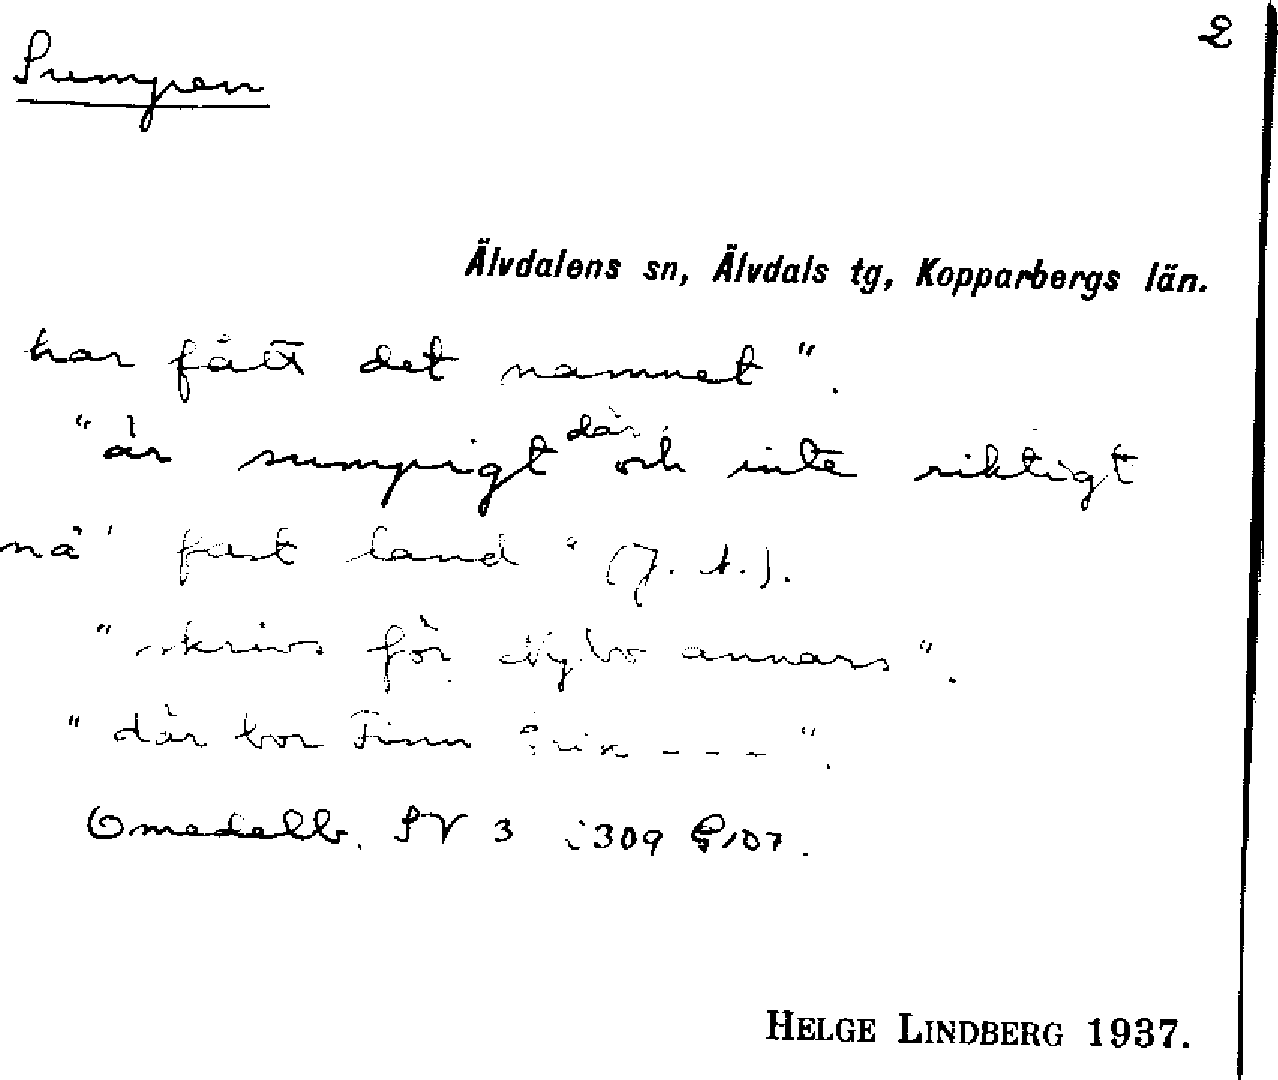 2
Sumpen
Älvdalens sn, Älvdals tg, Kopparbergs län.
har fått det namnet".
"är sumpigt där och inte riktigt
nå' fast land" (J. A.).
"skrivs för Nybo annars".
"där bor Finn Erik - - -".
Omedelb. SV 3 i 309 G 107.
HELGE LINDBERG 1937.